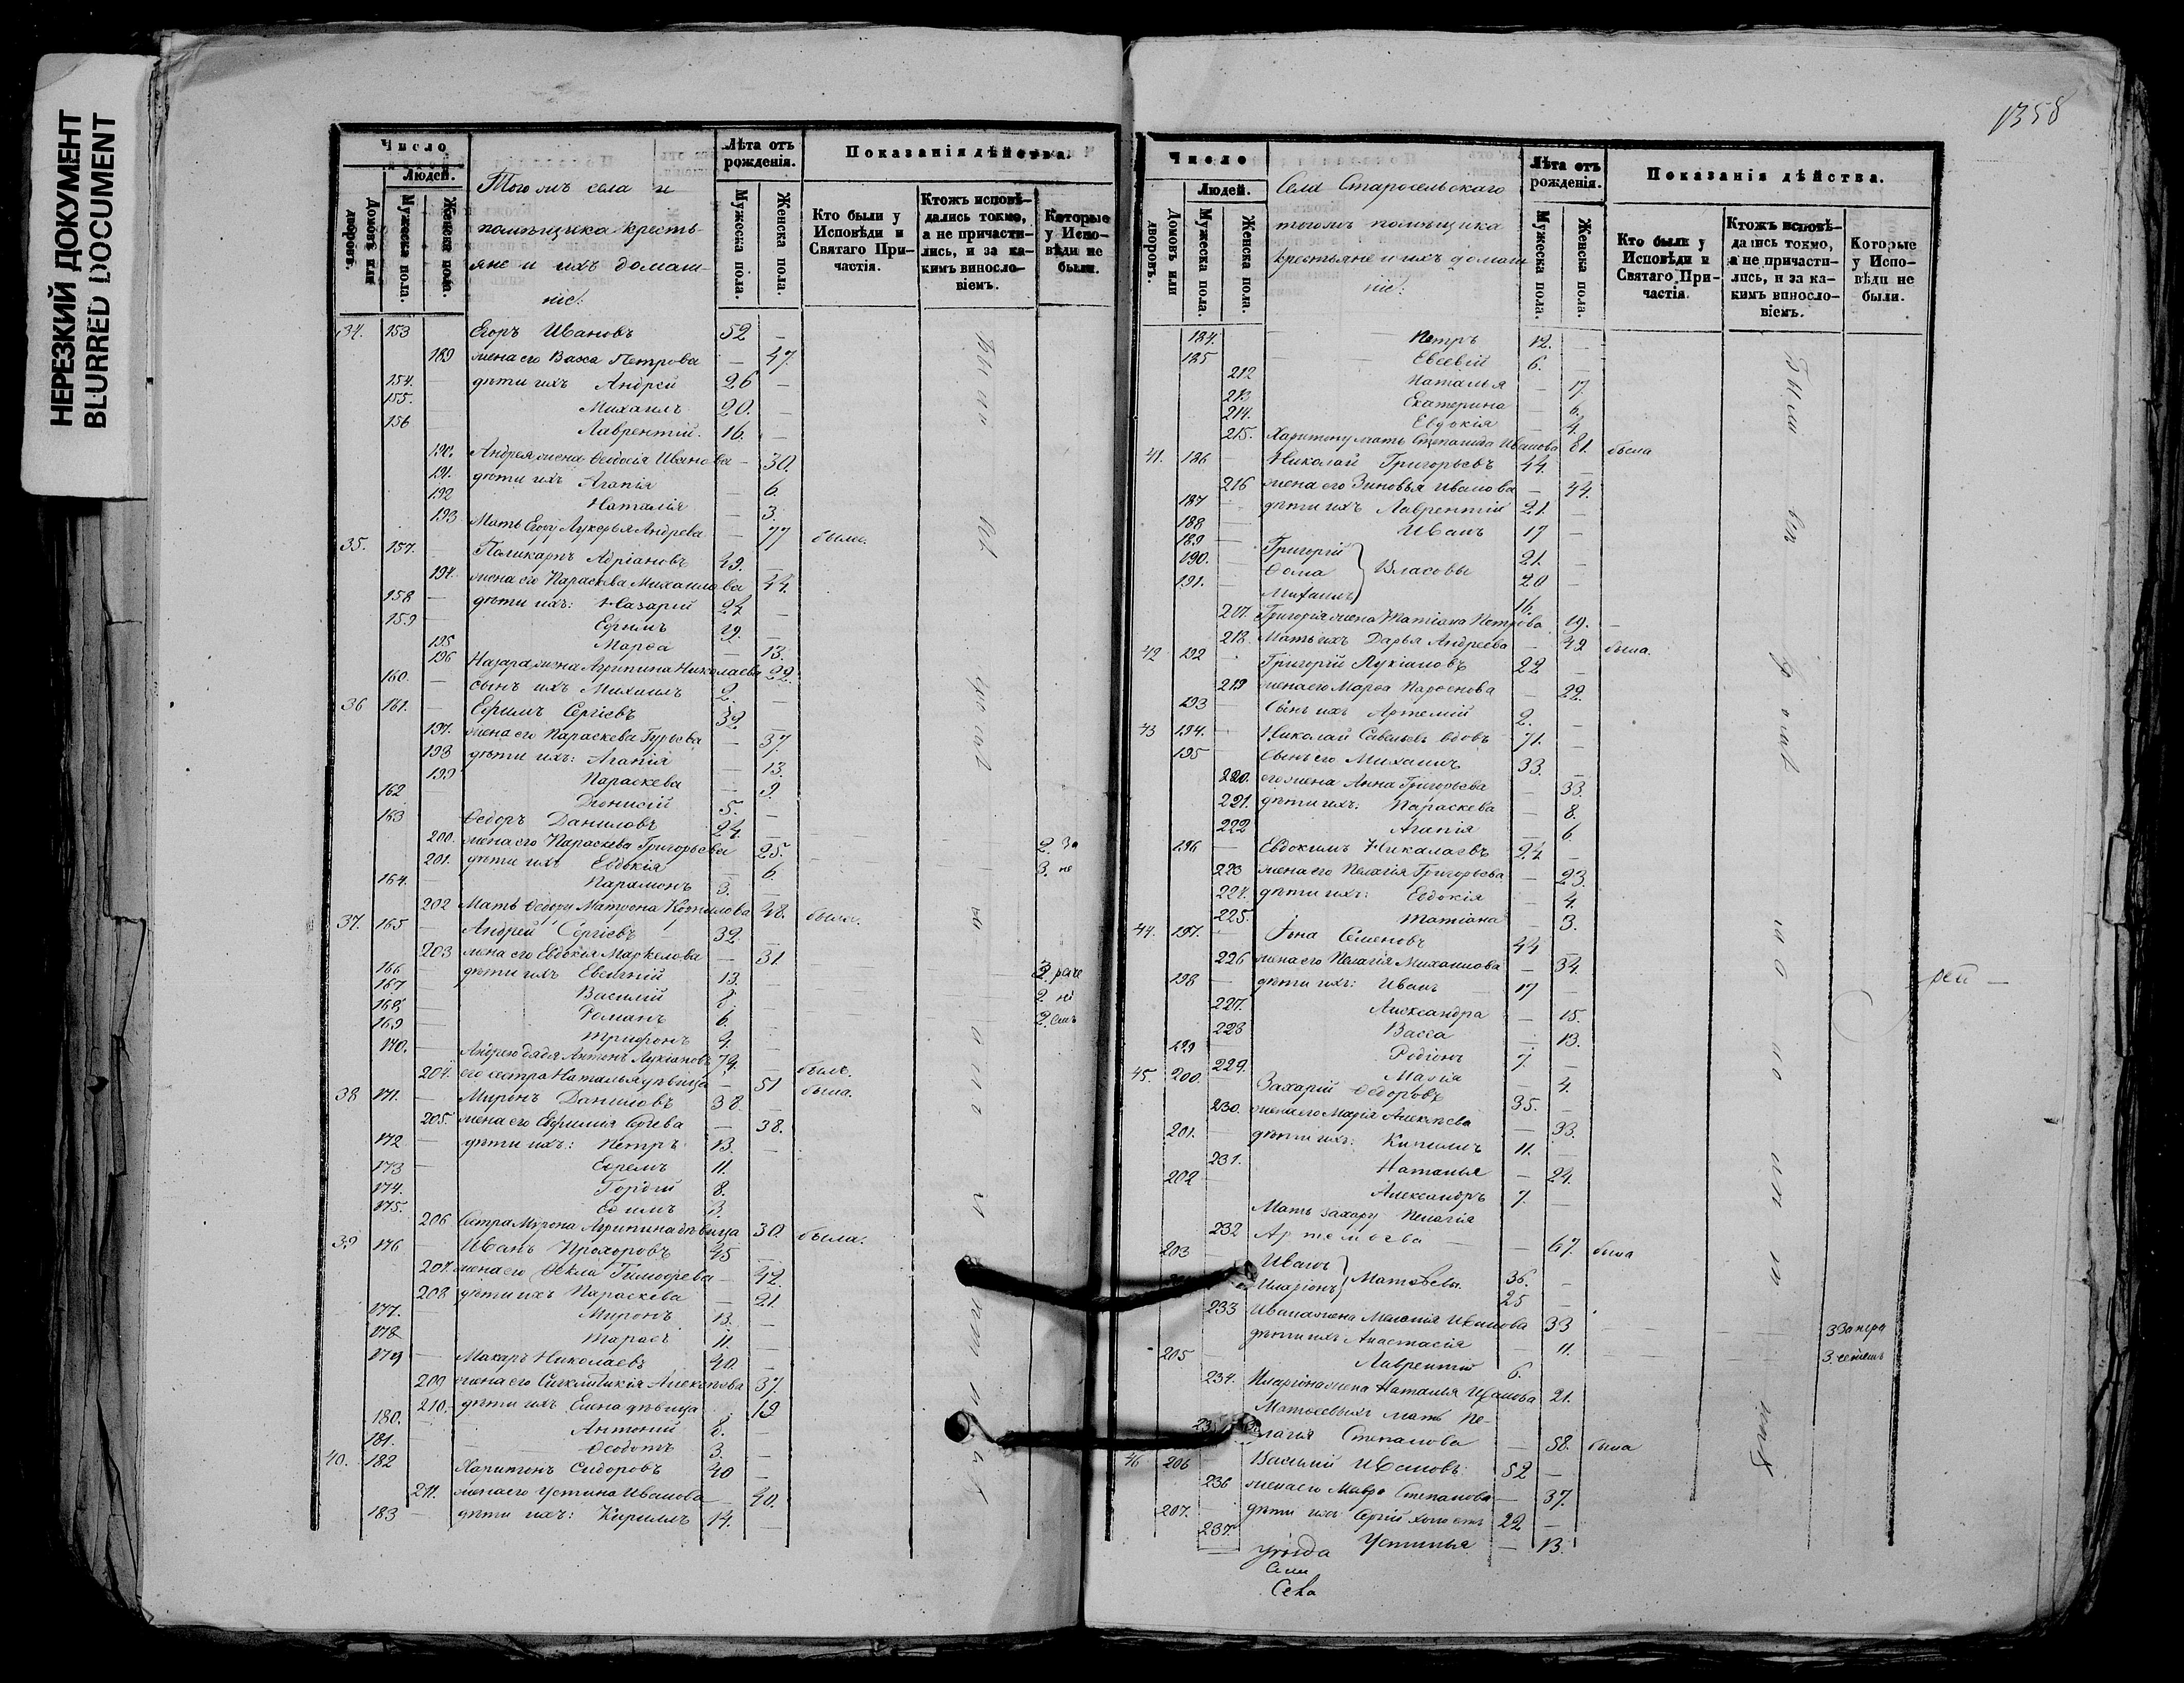 НЕРЕЗКИЙ ДОКУМЕНТ
BLURRED DOCUMENT
Число
Домовъ или дворовъ.
Людей.
Мужеска пола.
Женска пола.
Тогожъ села и
помѣщика кресть-
яне и ихъ домаш-
ніе:
Лѣта отъ рожденія.
Мужеска пола.
Женска пола.
Показанія дѣйства.
Кто были у Исповѣди и Святаго При-частія.
Ктожъ исповѣ-дались токмо, а не причасти-лись, и за ка-кимъ винослo-віемъ.
Которые у Испо-вѣди не были.
34. 153 Егоръ Ивановъ 52 —
189 жена его Васса Петрова — 47.
154. — дѣти ихъ Андрей 26 —
155. Михаилъ 20. —
156 Лаврентій. 16. —
190. Андрея жена Ѳеодосія Иванова — 30.
191. дѣти ихъ Агапія — 6.
192 Наталія — 3.
193 Мать Егору Лукерья Андреева — 77 была.
35. 157. — Поликарпъ Адріановъ 49. —
194. жена его Параскева Михаилова 44.
158 — дѣти ихъ: Назарій 24 —
159 — Ефимъ 19. —
195 Марѳа — 13.
196 Назара жена Агрипина Николаева 22.
160. — сынъ ихъ Михаилъ 2. —
36 161. — Ефимъ Сергіевъ 32 —
197. жена его Параскева Гурьева — 37.
198 дѣти ихъ: Агапія — 13.
199 Параскева — 9.
162 Діонисій 5. —
163 Ѳедоръ Даниловъ 24. —
200. жена его Параскева Григорьева 25. 2. За
201. дѣти ихъ Евдокія — 6. 3. не
164. Парамонъ 3. —
202 Мать Ѳедору Матрона Корнилова 48. была.
37. 165 — Андрей Сергіевъ 32. —
203 жена его Евдокія Маркелова — 31.
166 — дѣти ихъ Евгеній 13. —
167 — Василій 8. —
168 — Романъ 6. —
169 — Трифонъ 4. —
170. — Андрею дядя Антонъ Лукіановъ 74. — былъ.
204. его сестра Наталья дѣвица — 51 была.
38 171. — Миронъ Даниловъ 38. —
205. жена его Евфимия — 38.
172 — дѣти ихъ: Петръ 13. —
173 — Ефремъ 11.
174. Гордій 8.
175. Ефимъ 3.
206 Сестра Мирона Агрипина дѣвица 30. была.
39 176 — Иванъ Прохоровъ 45 —
207. жена его Ѳекла Тимоѳеева — 42.
208 дѣти ихъ Параскева — 21.
177. Миронъ 13. —
178 Тарасъ 11. —
179 — Макаръ Николаевъ 40. —
209 жена его Синклитикія Алексѣева 37.
210. дѣти ихъ Елена дѣвица 19
180. — Антоній 8. —
181. Ѳеодотъ 3. —
40. 182 Харитонъ Сидоровъ 40 —
211. жена его Устина Иванова — 40.
183 — дѣти ихъ: Кириллъ 14. —
1358
Число
Домовъ или дворовъ.
Людей.
Мужеска пола.
Женска пола.
Села Старосельскаго
тогожъ помѣщика
крестьяне и ихъ домаш
ніе:
Лѣта отъ рожденія.
Мужеска пола.
Женска пола.
Показанія дѣйства.
Кто были у Исповѣди и Святаго При-частія.
Ктожъ исповѣ-дались токмо, а не причасти-лись, и за ка-кимъ винослo-віемъ.
Которые у Испо-вѣди не были.
184. Петръ 12. —
185 Евсевій 6. —
212 Наталья — 17.
213 Екатерина — 6.
214. Евдокія — 4.
215. Харитону мать Степанида Иванова 81. была
41. 186 — Николай Григорьевъ 44. —
216 жена его Зиновья Иванова — 44.
187 — дѣти ихъ Лаврентій 21. —
188 Иванъ 17 —
189 — Григорій 21. —
190. — Ѳома } Власовы 20 —
191. — Михаилъ 16.
217. Григорія жена Татіана Петрова 19. —
218. Мать ихъ Дарья Андреева — 42 была.
42 192 — Григорій Лукіановъ 22 —
219 жена его Марѳа Парѳенова — 22.
193 — Сынъ ихъ Артемій 2. —
43 194. — Николай Савельевъ вдовъ 71. —
195 Сынъ его Михаилъ 33. —
220. его жена Анна Григорьева — 33.
221. дѣти ихъ: Параскева — 8.
222 Агапія — 6.
196 — Евдокимъ Николаевъ 24 —
223 жена его Пелагія Григорьева — 23.
224. дѣти ихъ: Евдокія — 4.
225. Татіана — 3.
44. 197. — Іона Семеновъ 44 —
226 жена его Пелагія Михаилова — 34.
198 — дѣти ихъ: Иванъ 17 —
227. Александра — 15.
228 Васса — 13.
199 Родіонъ 7. —
229. Марія — 4.
45. 200. — Захарій Ѳедоровъ 35. —
230. жена его Марія Алексѣева — 33.
201. — дѣти ихъ: Кириллъ 11. —
231. Наталья — 24.
202 — Александръ 7. —
Мать Захару Пелагія
232 Артемьева — — 67. была
203 — Иванъ } Матвѣевы. 36. —
Иларіонъ 25 —
233 Ивана жена Меланія Иванова 33
дѣти ихъ Анастасія — 11. 3 Запера
205 Лаврентій 6. 3.
234. Иларіона жена Наталья Иванова 21.
Матвеевыхъ мать Пе-
235 лагія Степанова — 58. была
46 206 — Василій Ивановъ 52 —
236 жена его Мавра Степанова — 37.
207. — дѣти ихъ Сергій холостъ 22 —
237. Устинья — 13.
уѣзда
Села